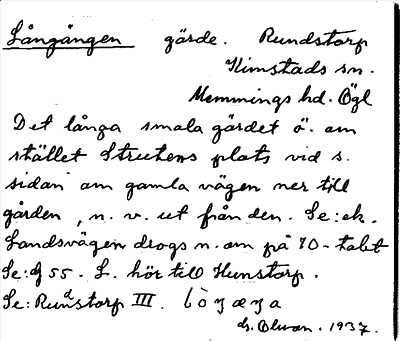 Långången gärde. Rundstorp
Kimstads sn.
Memmings hd. Ögl
Det långa smala gärdet ö. om
stället Strutens plats vid s.
sidan om gamla vägen ner till
gården, n. v. ut från den. Se: ek.
Landsvägen drogs n. om på 70-talet
Se: 55. L. hör till Hunstorp.
Se: Rundstorp III.
1937.